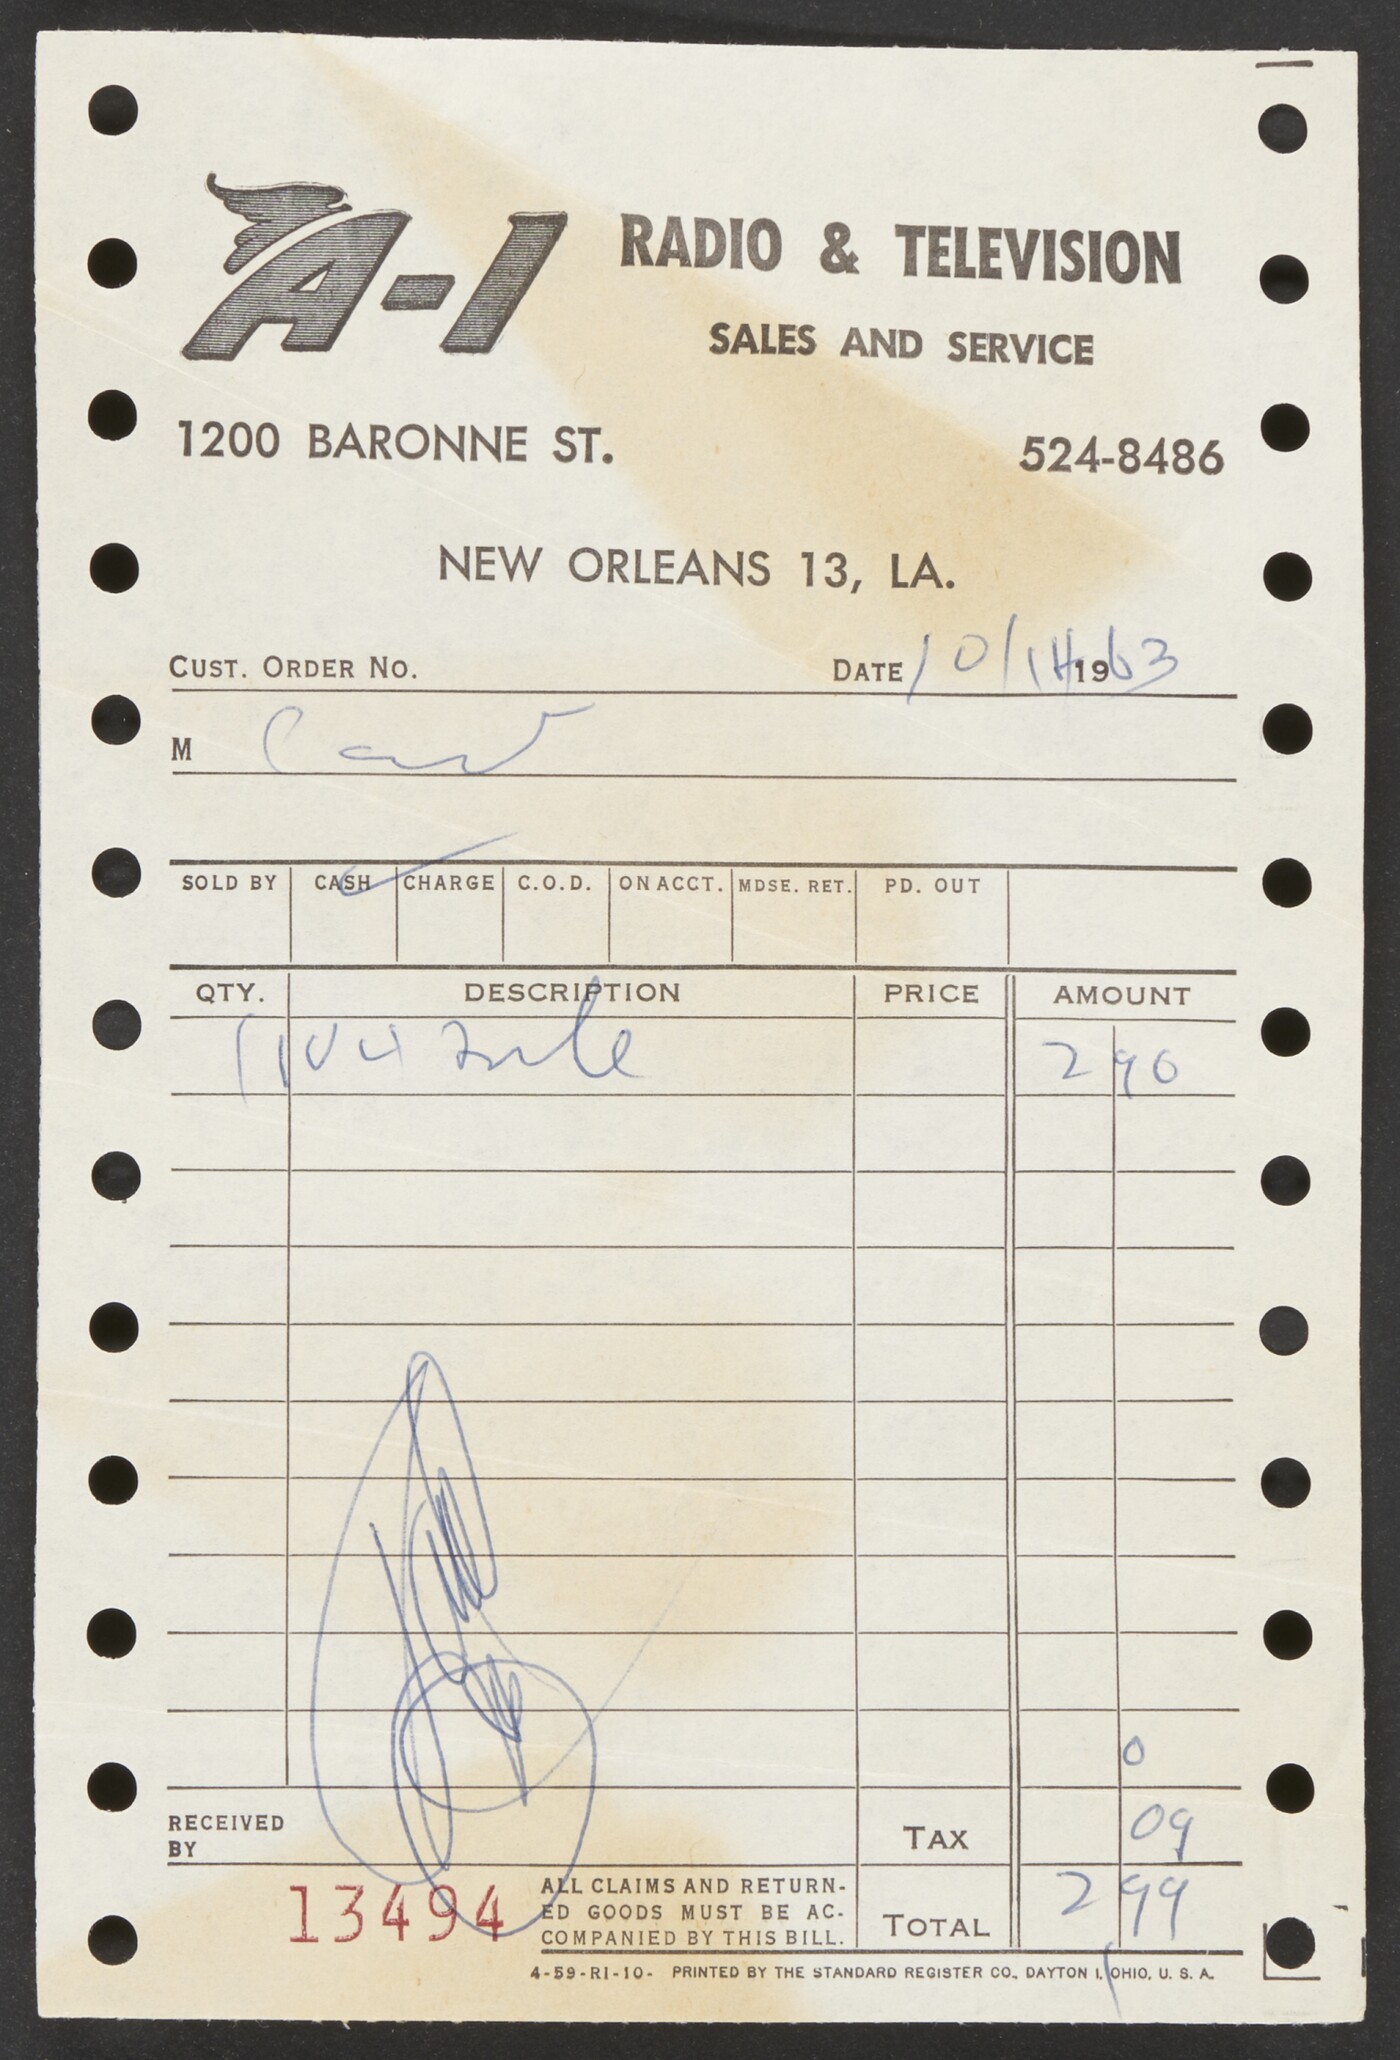 A-1 RADIO & TELEVISION
SALES AND SERVICE
1200 BARONNE ST. 524-8486
NEW ORLEANS 13, LA.
CUST. ORDER NO. DATE 10/14 1963
M
SOLD BY CASH CHARGE C.O.D. ON ACCT. MDSE. RET. PD. OUT
QTY. DESCRIPTION PRICE AMOUNT
1 2 90
0
RECEIVED
BY
TAX 09
13494
ALL CLAIMS AND RETURN-
ED GOODS MUST BE AC-
COMPANIED BY THIS BILL.
TOTAL 2 99
4-59-RI-10- PRINTED BY THE STANDARD REGISTER CO., DAYTON 1, OHIO, U. S. A.